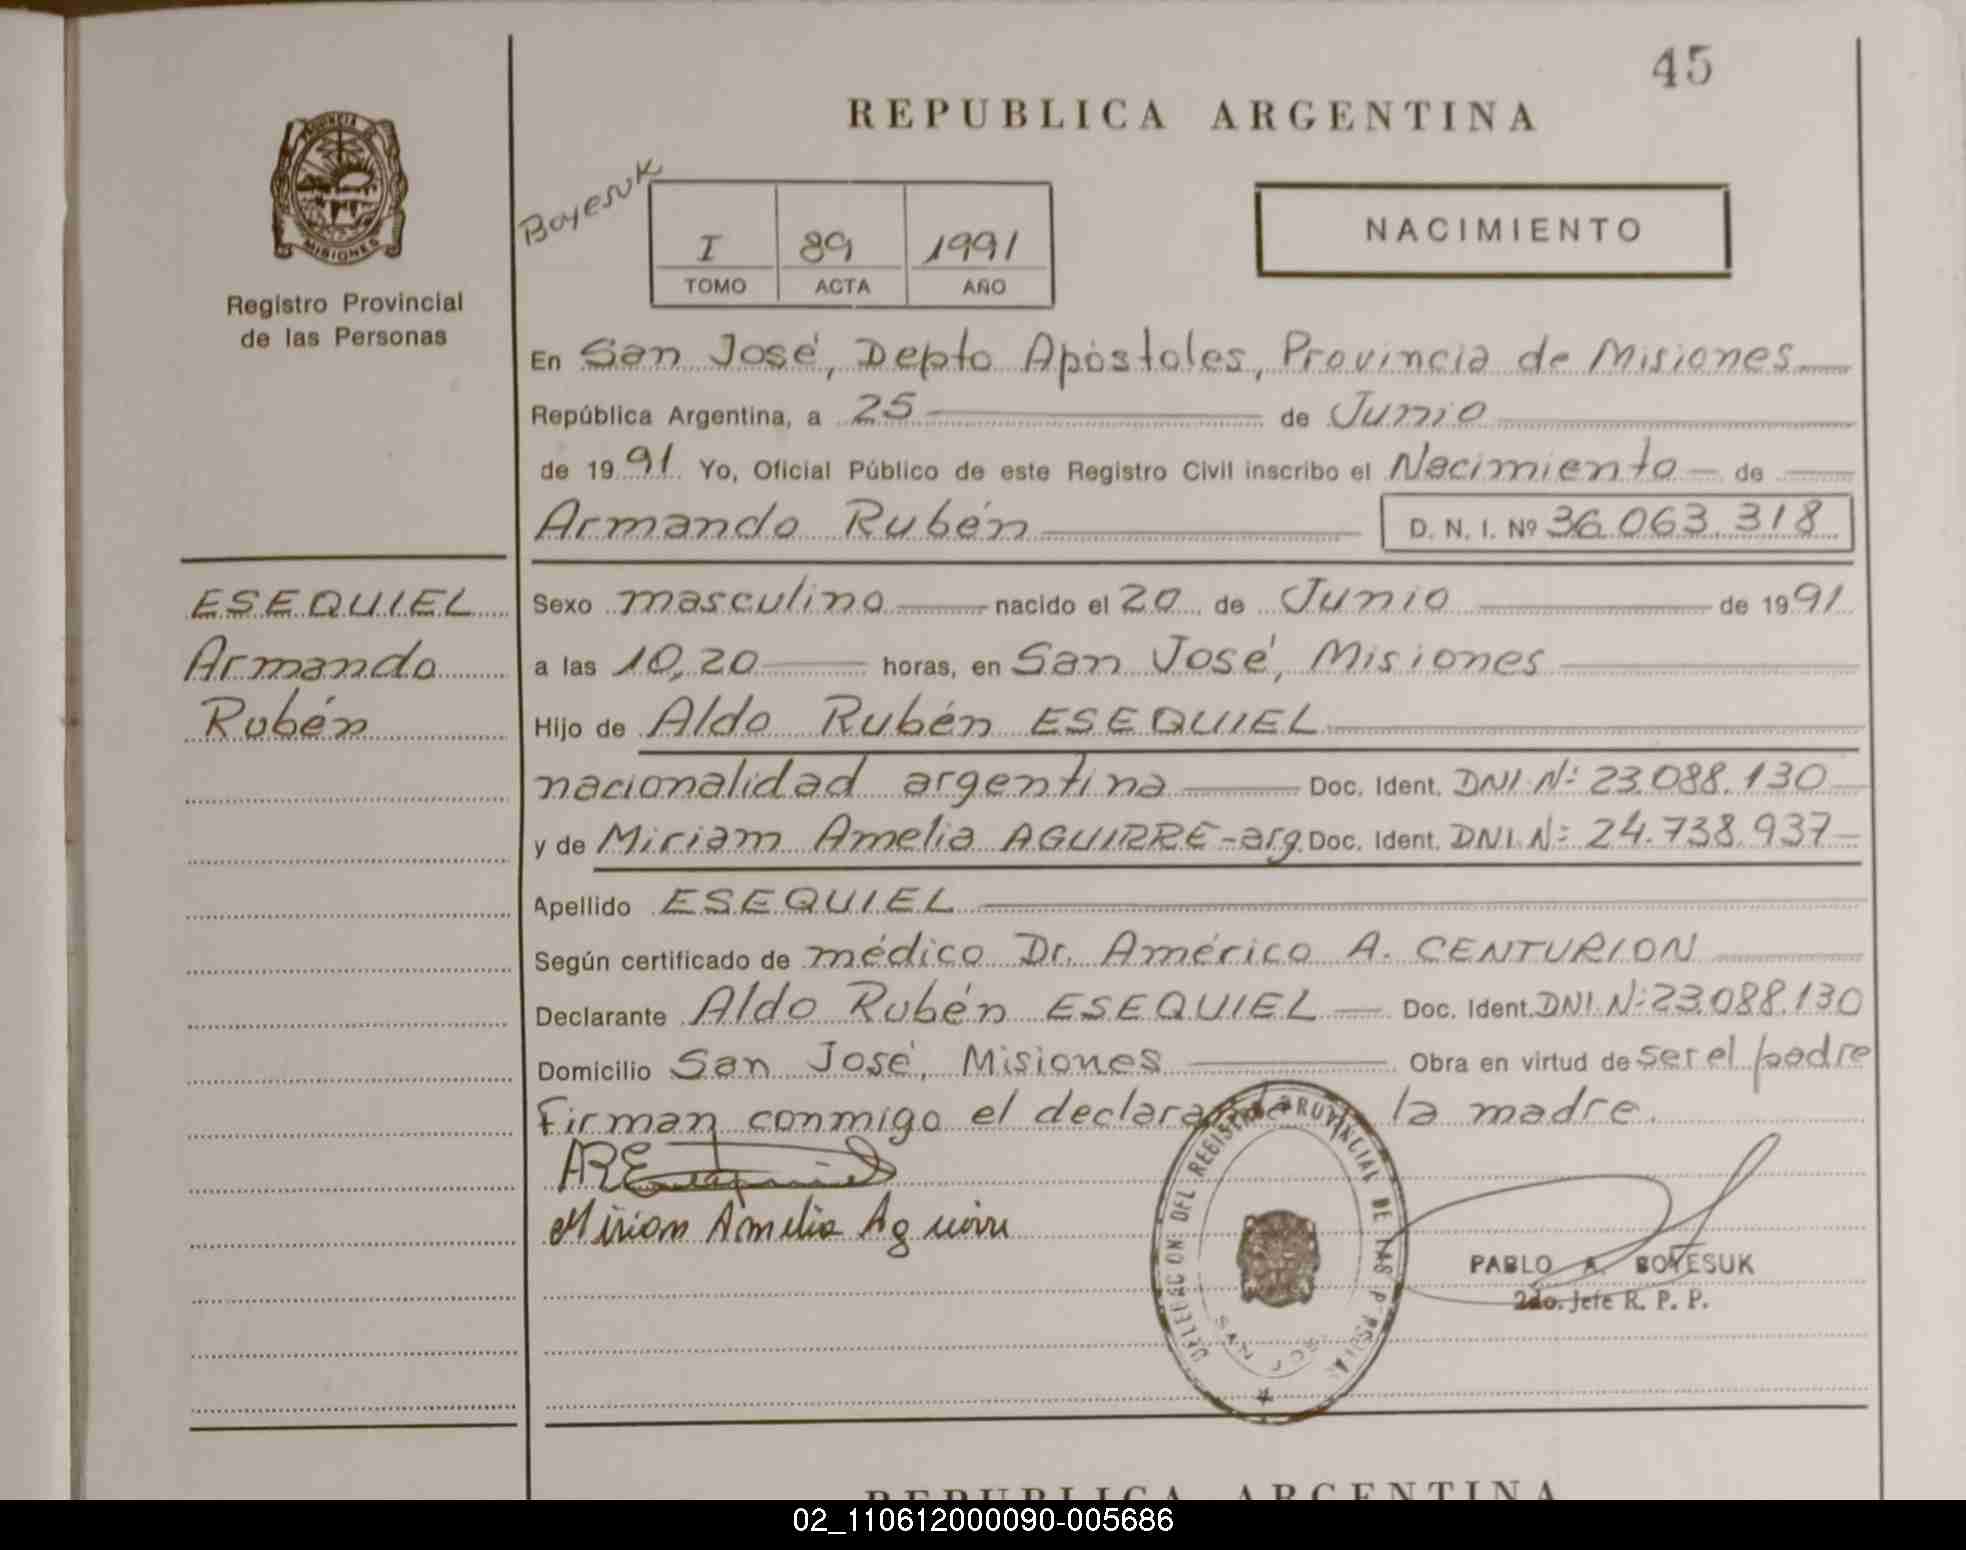 45
REPUBLICA ARGENTINA
PROVINCIA DE
MISIONES
Registro Provincial
de las Personas
Boyesuk
I 89 1991
TOMO ACTA AÑO
NACIMIENTO
En San José, Depto Apóstoles, Provincia de Misiones
República Argentina, a 25 de Junio
de 1991 Yo, Oficial Público de este Registro Civil inscribo el Nacimiento de
Armando Rubén D. N. I. Nº 36.063.318
ESEQUIEL
Armando
Rubén
Sexo masculino nacido el 20 de Junio de 1991
a las 10,20 horas, en San José, Misiones
Hijo de Aldo Rubén ESEQUIEL
nacionalidad argentina Doc. Ident. DNI.Nº 23.088.130
y de Miriam Amelia AGUIRRE-arg. Doc. Ident. DNI.Nº 24.738.937
Apellido ESEQUIEL
Según certificado de médico Dr. Américo A. CENTURION
Declarante Aldo Rubén ESEQUIEL Doc. Ident. DNI.Nº 23.088.130
Domicilio San José, Misiones Obra en virtud de ser el padre
Firman conmigo el declarante la madre.
ARE
Miriam Amelia Aguirre
DELEGACION DEL REGISTRO PROVINCIAL DE LAS PERSONAS
SAN JOSE
PABLO A. BOYESUK
2do. Jefe R. P. P.
REPUBLICA ARGENTINA
02_110612000090-005686